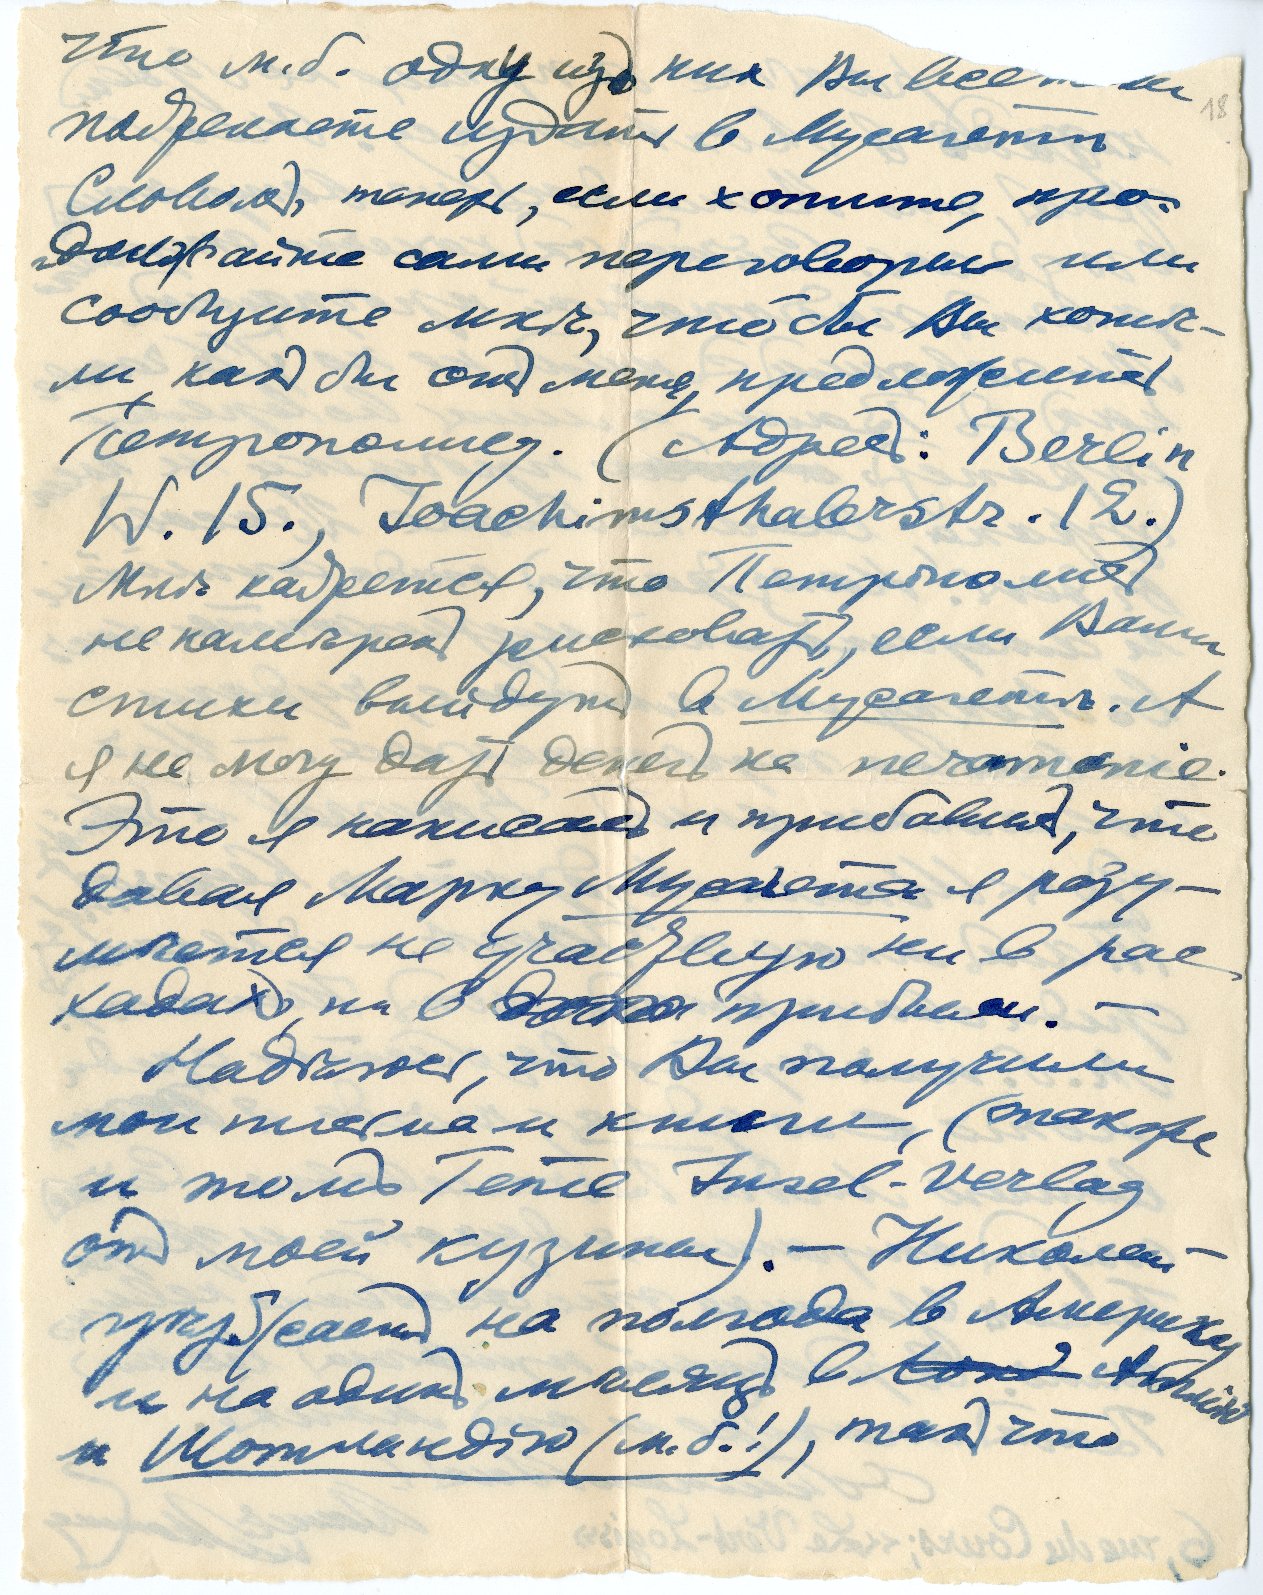 что м.б. одну изъ них Вы все
пожелаете издать в Мусагетѣ
Словомъ, теперь, если хотите, про-
должайте сами переговоры или
сообщите мнѣ, что бы Вы хотѣ-
ли, какъ бы отъ меня, предложить
Петрополису. (Адресъ: Berlin
W. 15., Joachimsthalerstr. 12.)
Мнѣ кажется, что Петрополисъ
не намѣренъ рисковать, если Ваши
стихи выйдутъ в Мусагетѣ. А
я не могу дать денегъ на печатаніе.
Это я написалъ и прибавилъ, что
давая Марку Мусагета я разу-
мѣется не участвую ни в рас-
ходахъ, ни в прибыли. —
Надѣюсь, что Вы получили
мои письма и книги, (также
и томъ Гете Insel-Verlag
отъ моей кузины). — Николай
уѣзжаетъ на полгода в Америку
и на одинъ мѣсяцъ в Лонд Англію
и Шотландію (м.б.!), такъ что
18